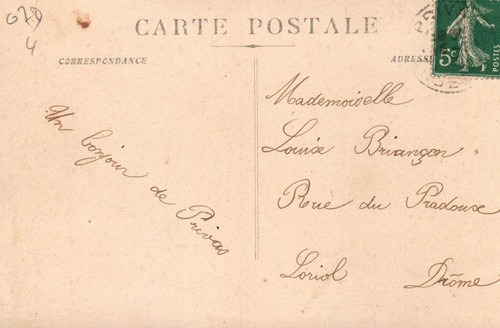 029
4
CARTE POSTALE
CORRESPONDANCE
ADRESSE
5c
POSTES
Un bonjour de Privas
Mademoiselle
Louise Briançon
Rue du Pradoux
Loriol Drôme